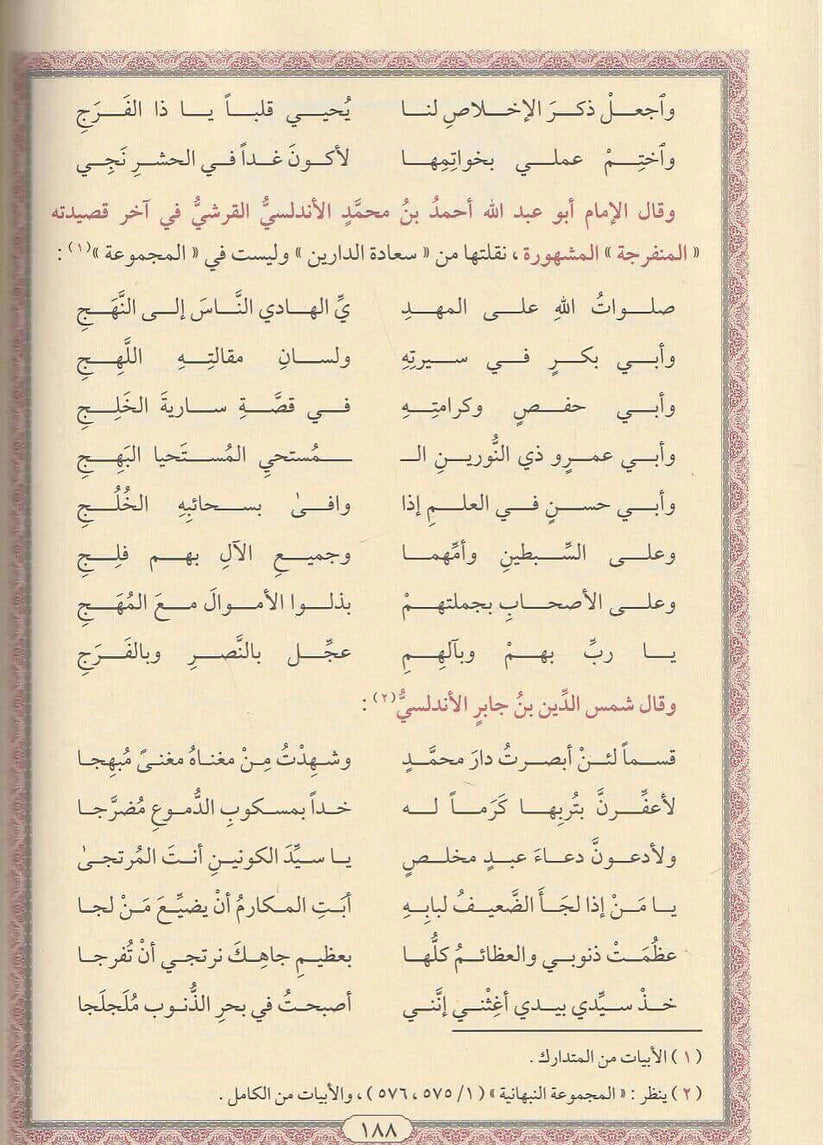 وٱجعلْ ذكرَ الإخلاصِ لنا يُحيي قلباً يا ذا الفَرَجِ
وٱختِمْ عملي بخواتِمِها لأكونَ غداً في الحشرِ نَجِي
وقال الإمام أبو عبد الله أحمدُ بنُ محمَّدٍ الأندلسيُّ القرشيُّ في آخر قصيدته
« المنفرجة » المشهورة ، نقلتها من « سعادة الدارين » وليست في « المجموعة »(١) :
صلواتُ اللهِ على المهدِ يِّ الهادي النَّاسَ إلى النَّهَجِ
وأبي بكرٍ في سيرتِهِ ولسانِ مقالتِهِ اللَّهِجِ
وأبي حفصٍ وكرامتِهِ في قصَّةِ ساريةَ الخَلِجِ
وأبي عمرٍو ذي النُّورينِ الـ ـمُستحيِ المُستَحيا البَهِجِ
وأبي حسنٍ في العلمِ إذا وافىٰ بسحائبِهِ الخُلُجِ
وعلى السِّبطينِ وأمِّهما وجميعِ الآلِ بهم فلِجِ
وعلى الأصحابِ بجملتهمْ بذلوا الأموالَ معَ المُهَجِ
يا ربِّ بهمْ وبآلِهِمِ عجِّل بالنَّصرِ وبالفَرَجِ
وقال شمس الدِّين بنُ جابرٍ الأندلسيُّ(٢) :
قسماً لئنْ أبصرتُ دارَ محمَّدٍ وشهِدْتُ مِنْ مغناهُ مغنىً مُبهِجا
لأعفِّرنَّ بتُربِها كَرَماً له خداً بمسكوبِ الدُّموعِ مُضرَّجا
ولأدعونَّ دعاءَ عبدٍ مخلصٍ يا سيِّدَ الكونينِ أنتَ المُرتجىٰ
يا مَنْ إذا لجَأَ الضَّعيفُ لبابِهِ أبَتِ المكارمُ أنْ يضيِّعَ مَنْ لجا
عظُمَتْ ذنوبي والعظائمُ كلُّها بعظيمِ جاهِكَ نرتجي أنْ تُفرجا
خذْ سيِّدي بيدي أغِثْني إنَّني أصبحتُ في بحرِ الذُّنوب مُلَجلَجا
( ١ ) الأبيات من المتدارك .
( ٢ ) ينظر : « المجموعة النبهانية » ( ١/ ٥٧٥ ، ٥٧٦ ) ، والأبيات من الكامل .
١٨٨